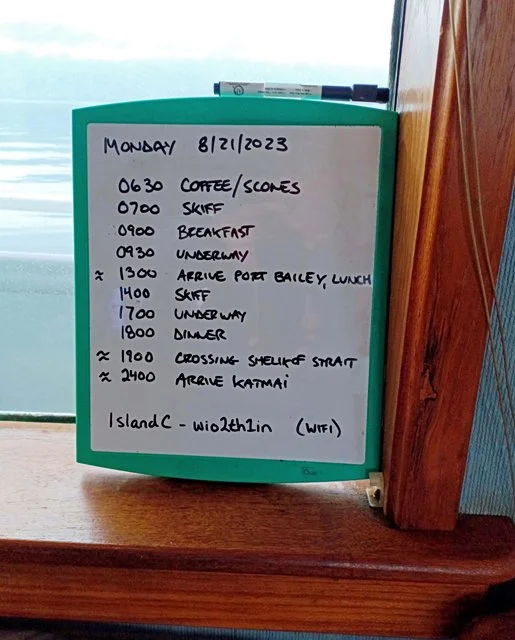 MONDAY 8/21/2023
0630 COFFEE/SCONES
0700 SKIFF
0900 BREAKFAST
0930 UNDERWAY
≈ 1300 ARRIVE PORT BAILEY, LUNCH
1400 SKIFF
1700 UNDERWAY
1800 DINNER
≈ 1900 CROSSING SHELIKOF STRAIT
≈ 2400 ARRIVE KATMAI
IslandC - wio2th1in (WIFI)